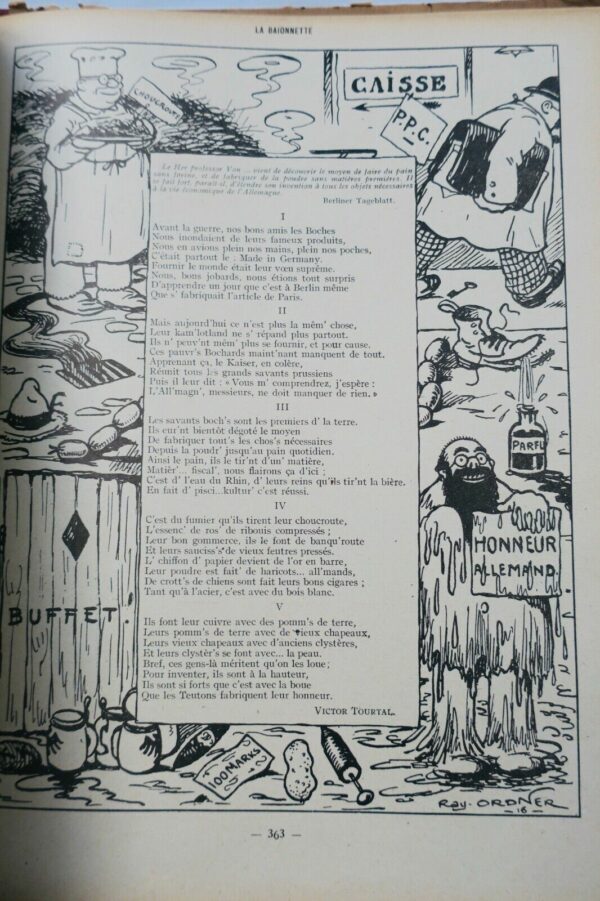 LA BAIONNETTE
CHOUCROUTE
CAISSE
P.P.C.
Le Her professor Von ... vient de découvrir le moyen de faire du pain
sans farine, et de fabriquer de la poudre sans matières premières. Il
se fait fort, paraît-il, d'étendre son invention à tous les objets nécessaires
à la vie économique de l'Allemagne.
Berliner Tageblatt.
I
Avant la guerre, nos bons amis les Boches
Nous inondaient de leurs fameux produits,
Nous en avions plein nos mains, plein nos poches,
C'était partout le : Made in Germany.
Fournir le monde était leur vœu suprême.
Nous, bons jobards, nous étions tout surpris
D'apprendre un jour que c'est à Berlin même
Que s' fabriquait l'article de Paris.
II
Mais aujourd'hui ce n'est plus la mêm' chose,
Leur kam'lotland ne s' répand plus partout.
Ils n' peuv'nt mêm' plus se fournir, et pour cause.
Ces pauvr's Bochards maint'nant manquent de tout.
Apprenant ça, le Kaiser, en colère,
Réunit tous les grands savants prussiens
Puis il leur dit : « Vous m' comprendrez, j'espère :
L'All'magn', messieurs, ne doit manquer de rien. »
III
Les savants boch's sont les premiers d' la terre.
Ils eur'nt bientôt dégoté le moyen
De fabriquer tout's les chos's nécessaires
Depuis la poudr' jusqu'au pain quotidien.
Ainsi le pain, ils le tir'nt d'un' matière,
Matièr'... fiscal', nous flairons ça d'ici ;
C'est d' l'eau du Rhin, d' leurs reins qu'ils tir'nt la bière.
En fait d' pisci...kultur' c'est réussi.
IV
C'est du fumier qu'ils tirent leur choucroute,
L'essenc' de ros' de ribouis compressés ;
Leur bon gommerce, ils le font de banqu'route
Et leurs sauciss's de vieux feutres pressés.
L' chiffon d' papier devient de l'or en barre,
Leur poudre est fait' de haricots... all'mands,
De crott's de chiens sont fait leurs bons cigares ;
Tant qu'à l'acier, c'est avec du bois blanc.
V
Ils font leur cuivre avec des pomm's de terre,
Leurs pomm's de terre avec de vieux chapeaux,
Leurs vieux chapeaux avec d'anciens clystères,
Et leurs clystèr's se font avec... la peau.
Bref, ces gens-là méritent qu'on les loue ;
Pour inventer, ils sont à la hauteur,
Ils sont si forts que c'est avec la boue
Que les Teutons fabriquent leur honneur.
VICTOR TOURTAL.
PARFU
HONNEUR
ALLEMAND
BUFFET.
100 MARKS
Ray. ORDNER
16
— 363 —